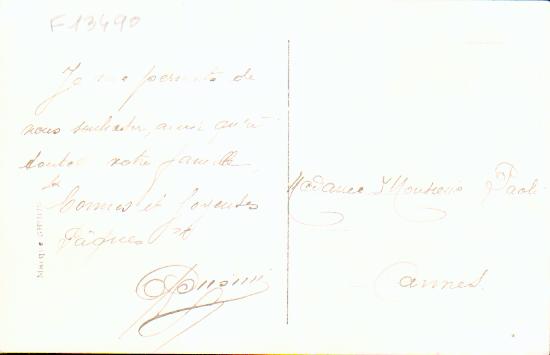 F13490
Je me permets de
vous souhaiter, ainsi qu'à
toutes votre famille
Bonnes et Joyeuses
Pâques
Marque
Madame & Monsieur Paoli
Cannes.